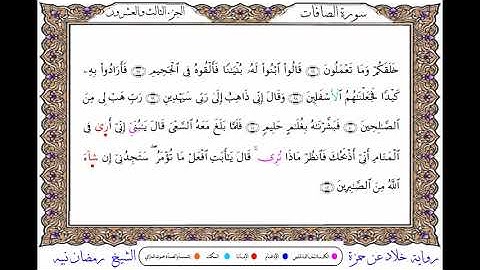 سورة الصافات
الجزء الثالث والعشرون
خَلَقَكُمْ وَمَا تَعْمَلُونَ ۝ قَالُوا۟ ٱبْنُوا۟ لَهُۥ بُنْيَـٰنًا فَأَلْقُوهُ فِى ٱلْجَحِيمِ ۝ فَأَرَادُوا۟ بِهِۦ
كَيْدًا فَجَعَلْنَـٰهُمُ ٱلْأَسْفَلِينَ ۝ وَقَالَ إِنِّى ذَاهِبٌ إِلَىٰ رَبِّى سَيَهْدِينِ ۝ رَبِّ هَبْ لِى مِنَ
ٱلصَّـٰلِحِينَ ۝ فَبَشَّرْنَـٰهُ بِغُلَـٰمٍ حَلِيمٍ ۝ فَلَمَّا بَلَغَ مَعَهُ ٱلسَّعْىَ قَالَ يَـٰبُنَىِّ إِنِّى أَرَىٰ فِى
ٱلْمَنَامِ أَنِّى أَذْبَحُكَ فَٱنظُرْ مَاذَا تُرِى ۚ قَالَ يَـٰٓأَبَتِ ٱفْعَلْ مَا تُؤْمَرُ ۖ سَتَجِدُنِى إِن شَآءَ
ٱللَّهُ مِنَ ٱلصَّـٰبِرِينَ ۝
رواية خلاد عن حمزة
الشيخ رمضان نبيه